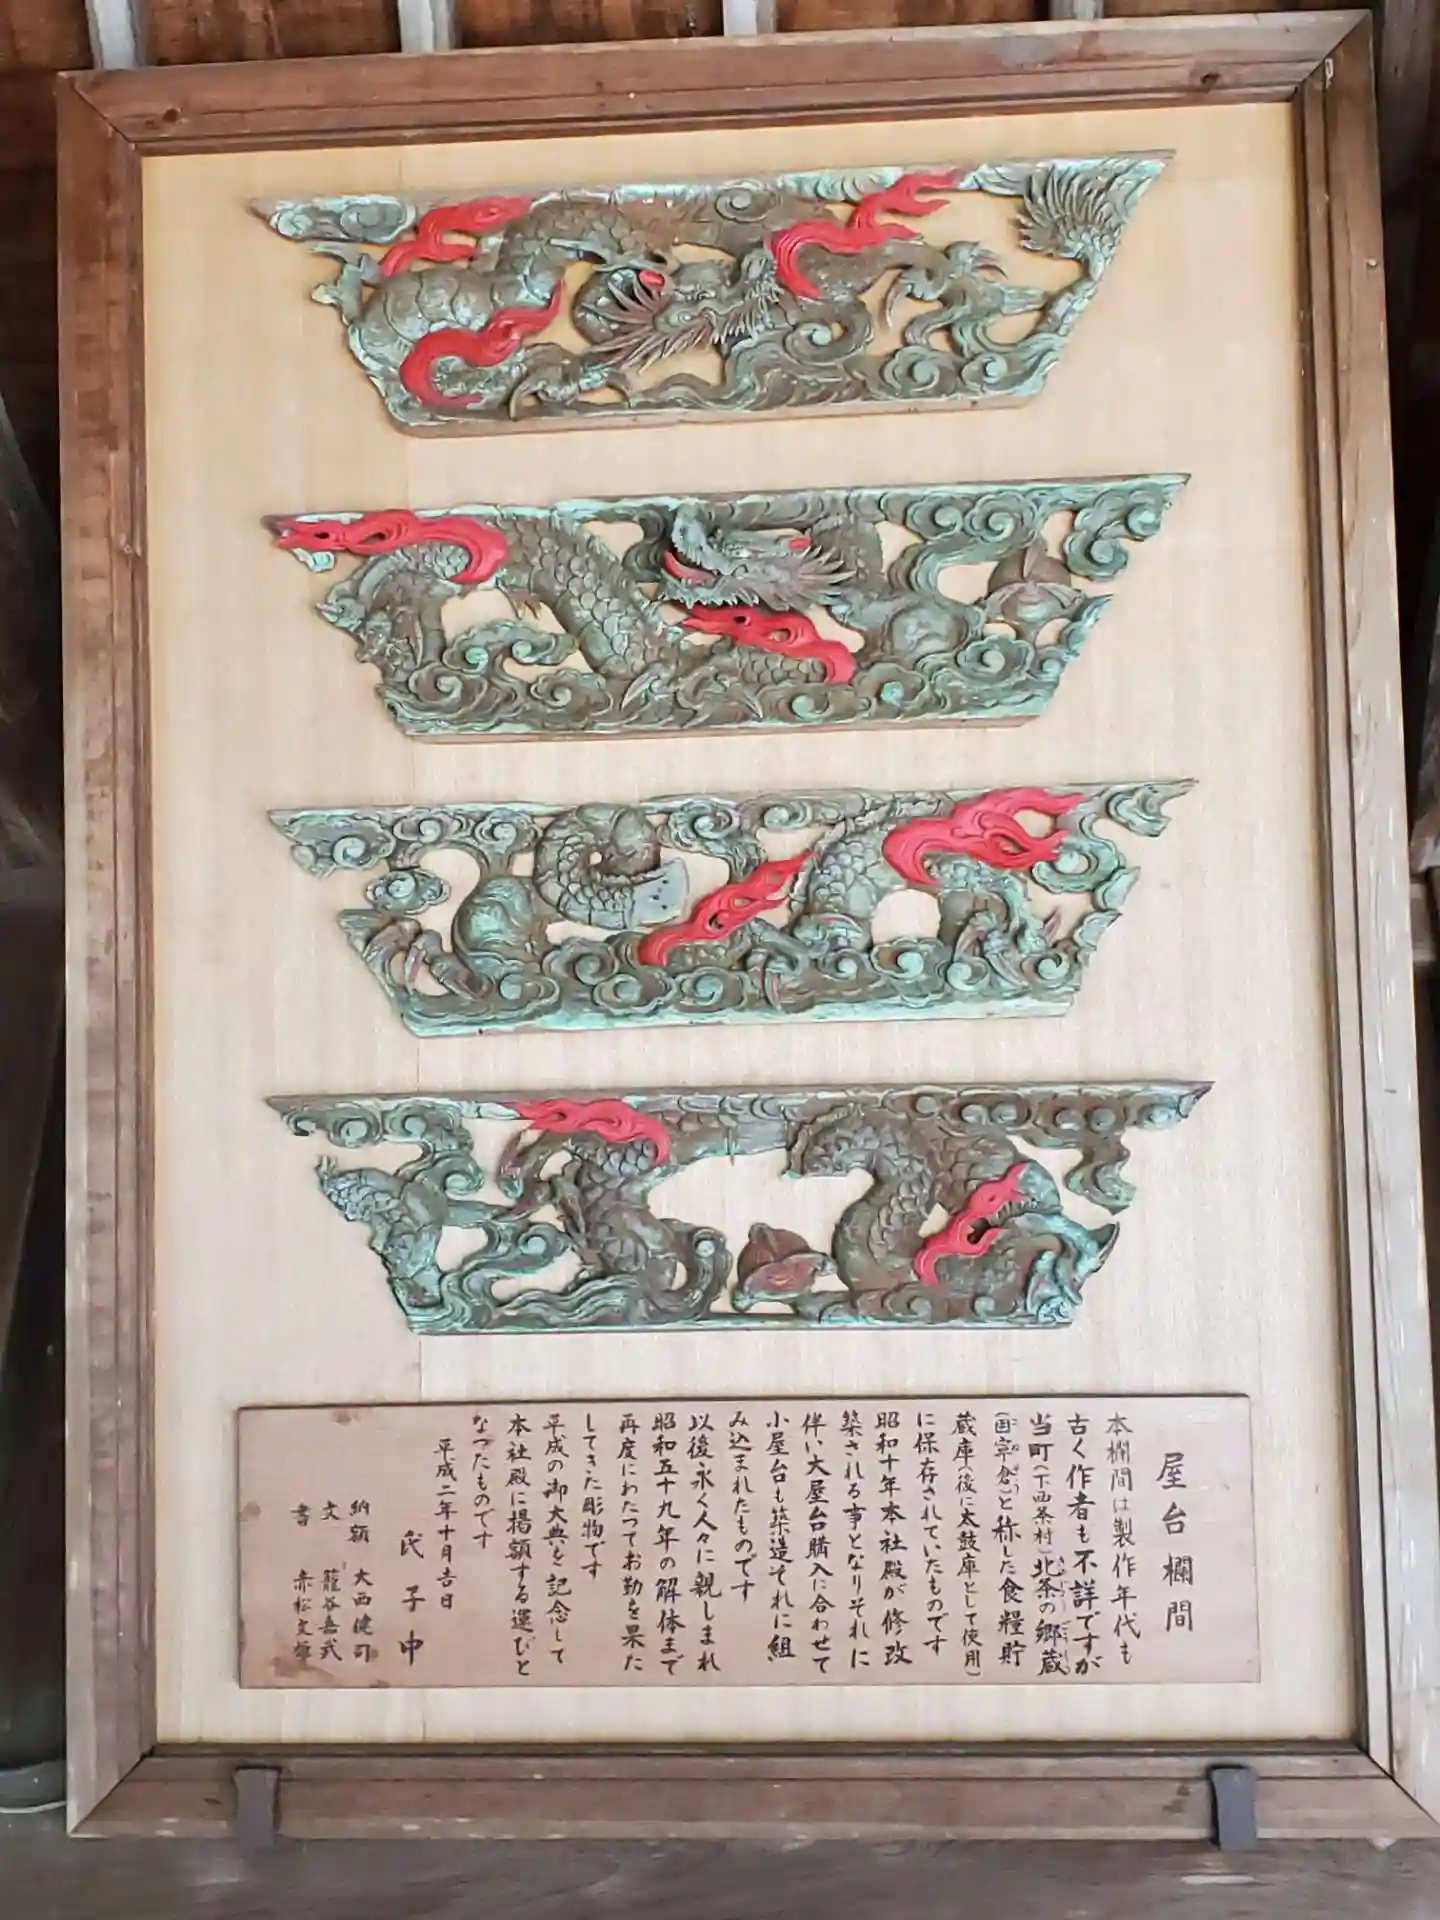 屋台欄間
本欄間は製作年代も
古く作者も不詳ですが
当町(下西条村)北条の郷蔵
と称した食糧貯
蔵庫(後に太鼓庫として使用)
に保存されていたものです
昭和十年本社殿が修改
築される事となりそれに
伴い大屋台購入に合わせて
小屋台も築造それに組
み込まれたものです
以後永く人々に親しまれ
昭和五十九年の解体まで
再度にわたってお勤を果た
してきた彫物です
平成の御大典を記念して
本社殿に掲額する運びと
なったものです
平成二年十月吉日
氏子中
納額 大西健司
文 籠谷嘉武
書 赤松文雄